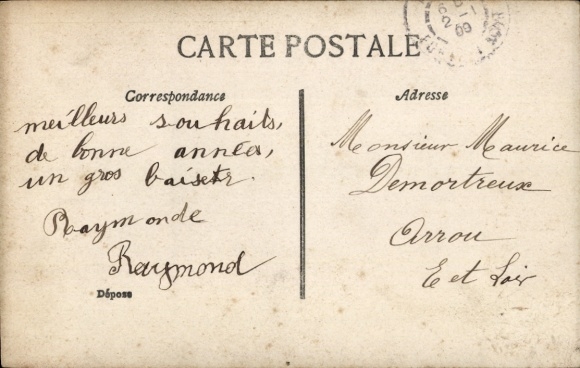 CARTE POSTALE
Correspondance
meilleurs souhaits,
de bonne année,
un gros baiser.
Raymonde
Raymond
Déposé
Adresse
Monsieur Maurice
Demortreux
Arrou
E et Loir
2 -1
09